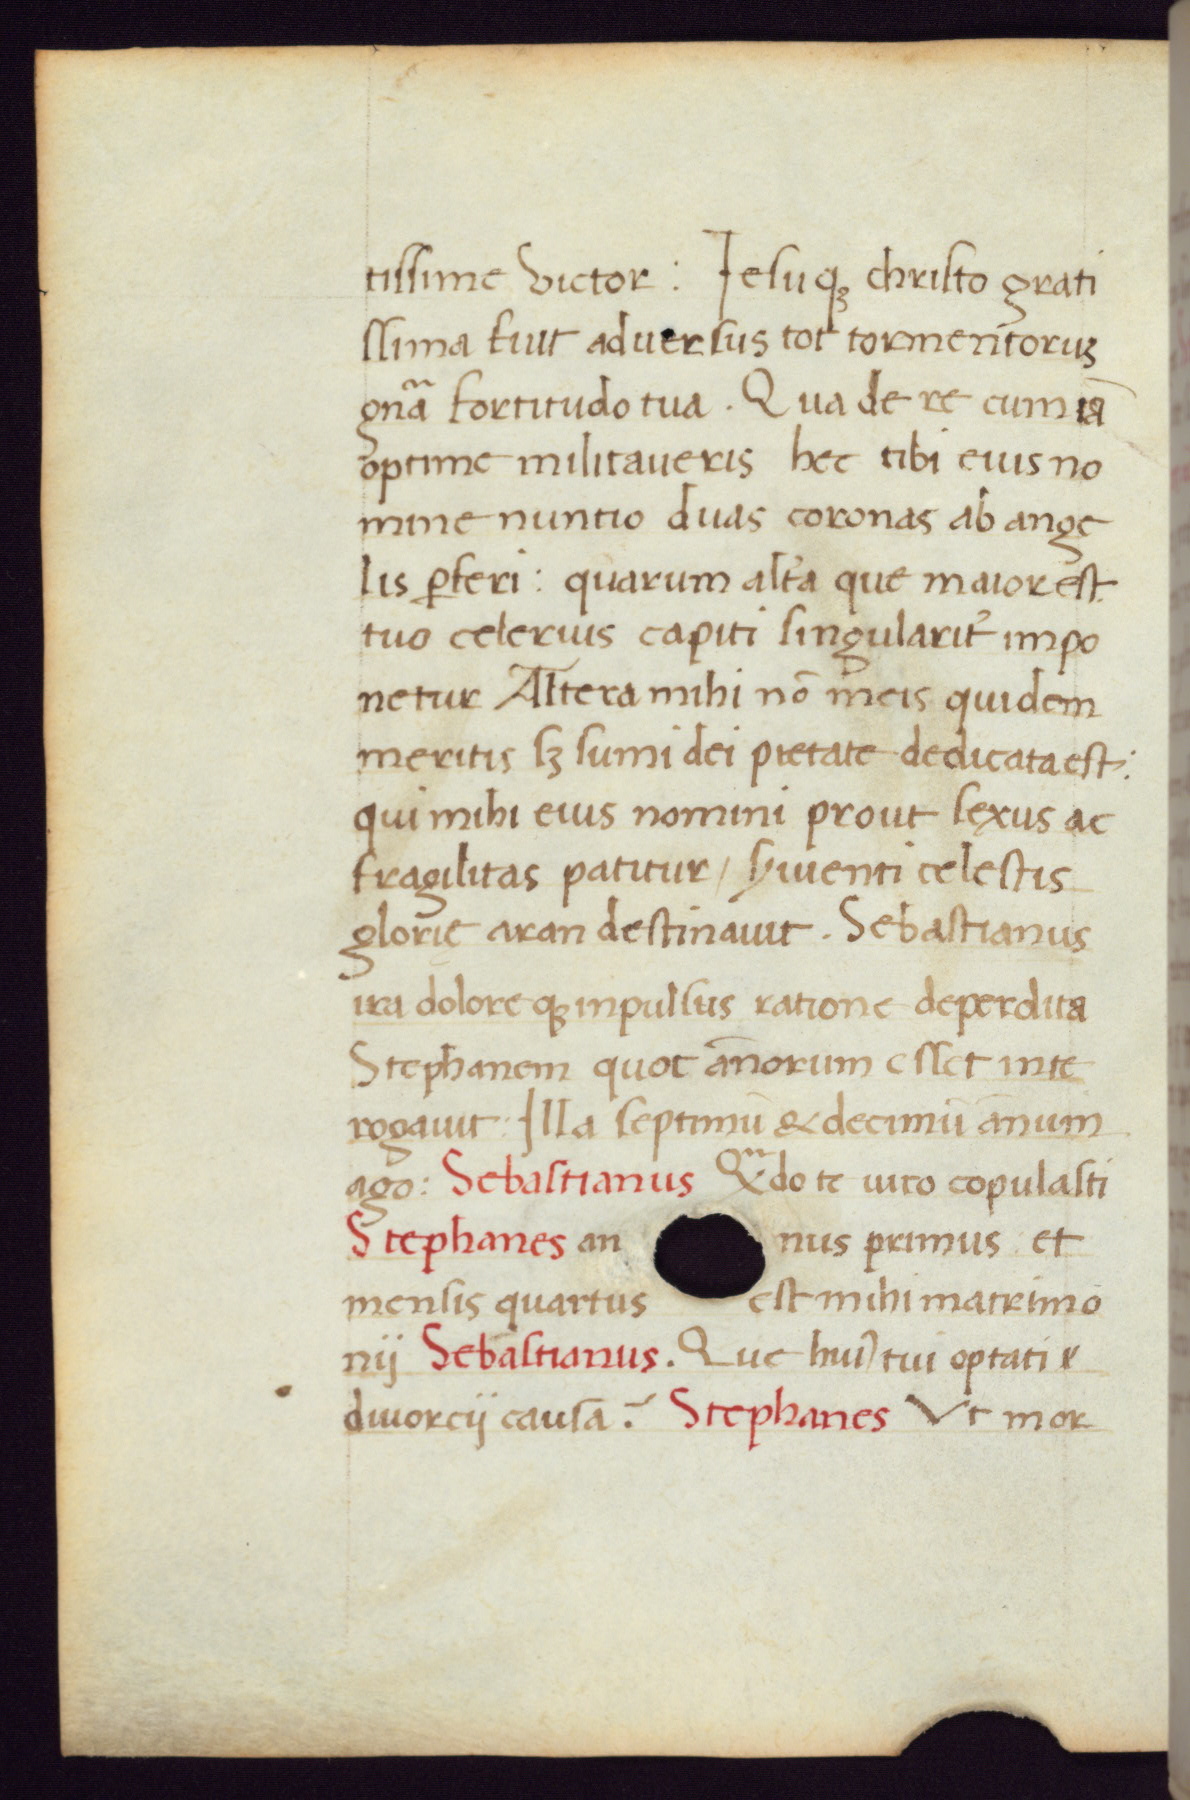 tissime Victor : Iesuqꝫ christo grati
ssima fuit aduersus tot tormentoruꝫ
gn̄a fortitudo tua . Qua de re cum iā
optime militaueris hec tibi eius no
mine nuntio duas coronas ab ange
lis ꝑferi : quarum alt̓a que maior est
tuo celerius capiti singularit̓ impo
netur Altera mihi nō meis quidem
meritis sꝫ sumi dei pietate dedicata est :
qui mihi eius nomini prout sexus ac
fragilitas patitur / seruienti celestis
glorie aran destinauit . Sebastianus
ira doloreqꝫ inpulsus ratione deperdita
Stephanem quot ān̄orum esset inte
rogauit : Illa septimū & decimū ānum
ago : Sebastianus Qn̄do te uiro copulasti
Stephanes an nus primus et
mensis quartus est mihi matrimo
nij Sebastianus . Que hui᾽ tui optati
diuorcij causā ? Stephanes Vt mor